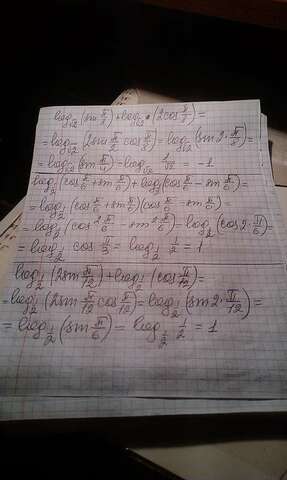 log_√2 (sin π/8) + log_√2 (2cos π/8) =
= log_√2 (2sin π/8 cos π/8) = log_√2 (sin 2·π/8) =
= log_√2 (sin π/4) = log_√2 1/√2 = -1
log_1/2 (cos π/6 + sin π/6) + log_1/2 (cos π/6 - sin π/6) =
= log_1/2 (cos π/6 + sin π/6)(cos π/6 - sin π/6) =
= log_1/2 (cos² π/6 - sin² π/6) = log_1/2 (cos 2·π/6) =
= log_1/2 cos π/3 = log_1/2 1/2 = 1
log_1/2 (2sin π/12) + log_1/2 (cos π/12) =
= log_1/2 (2sin π/12 cos π/12) = log_1/2 (sin 2·π/12) =
= log_1/2 (sin π/6) = log_1/2 1/2 = 1